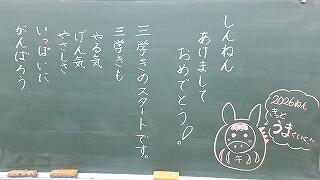 しんねん
あけまして
おめでとう！
三学きのスタートです。
三学きも
やる気
げん気
やさしさ
いっぱいに
がんばろう
2026ねん
きっと
うまくいくヾ
午